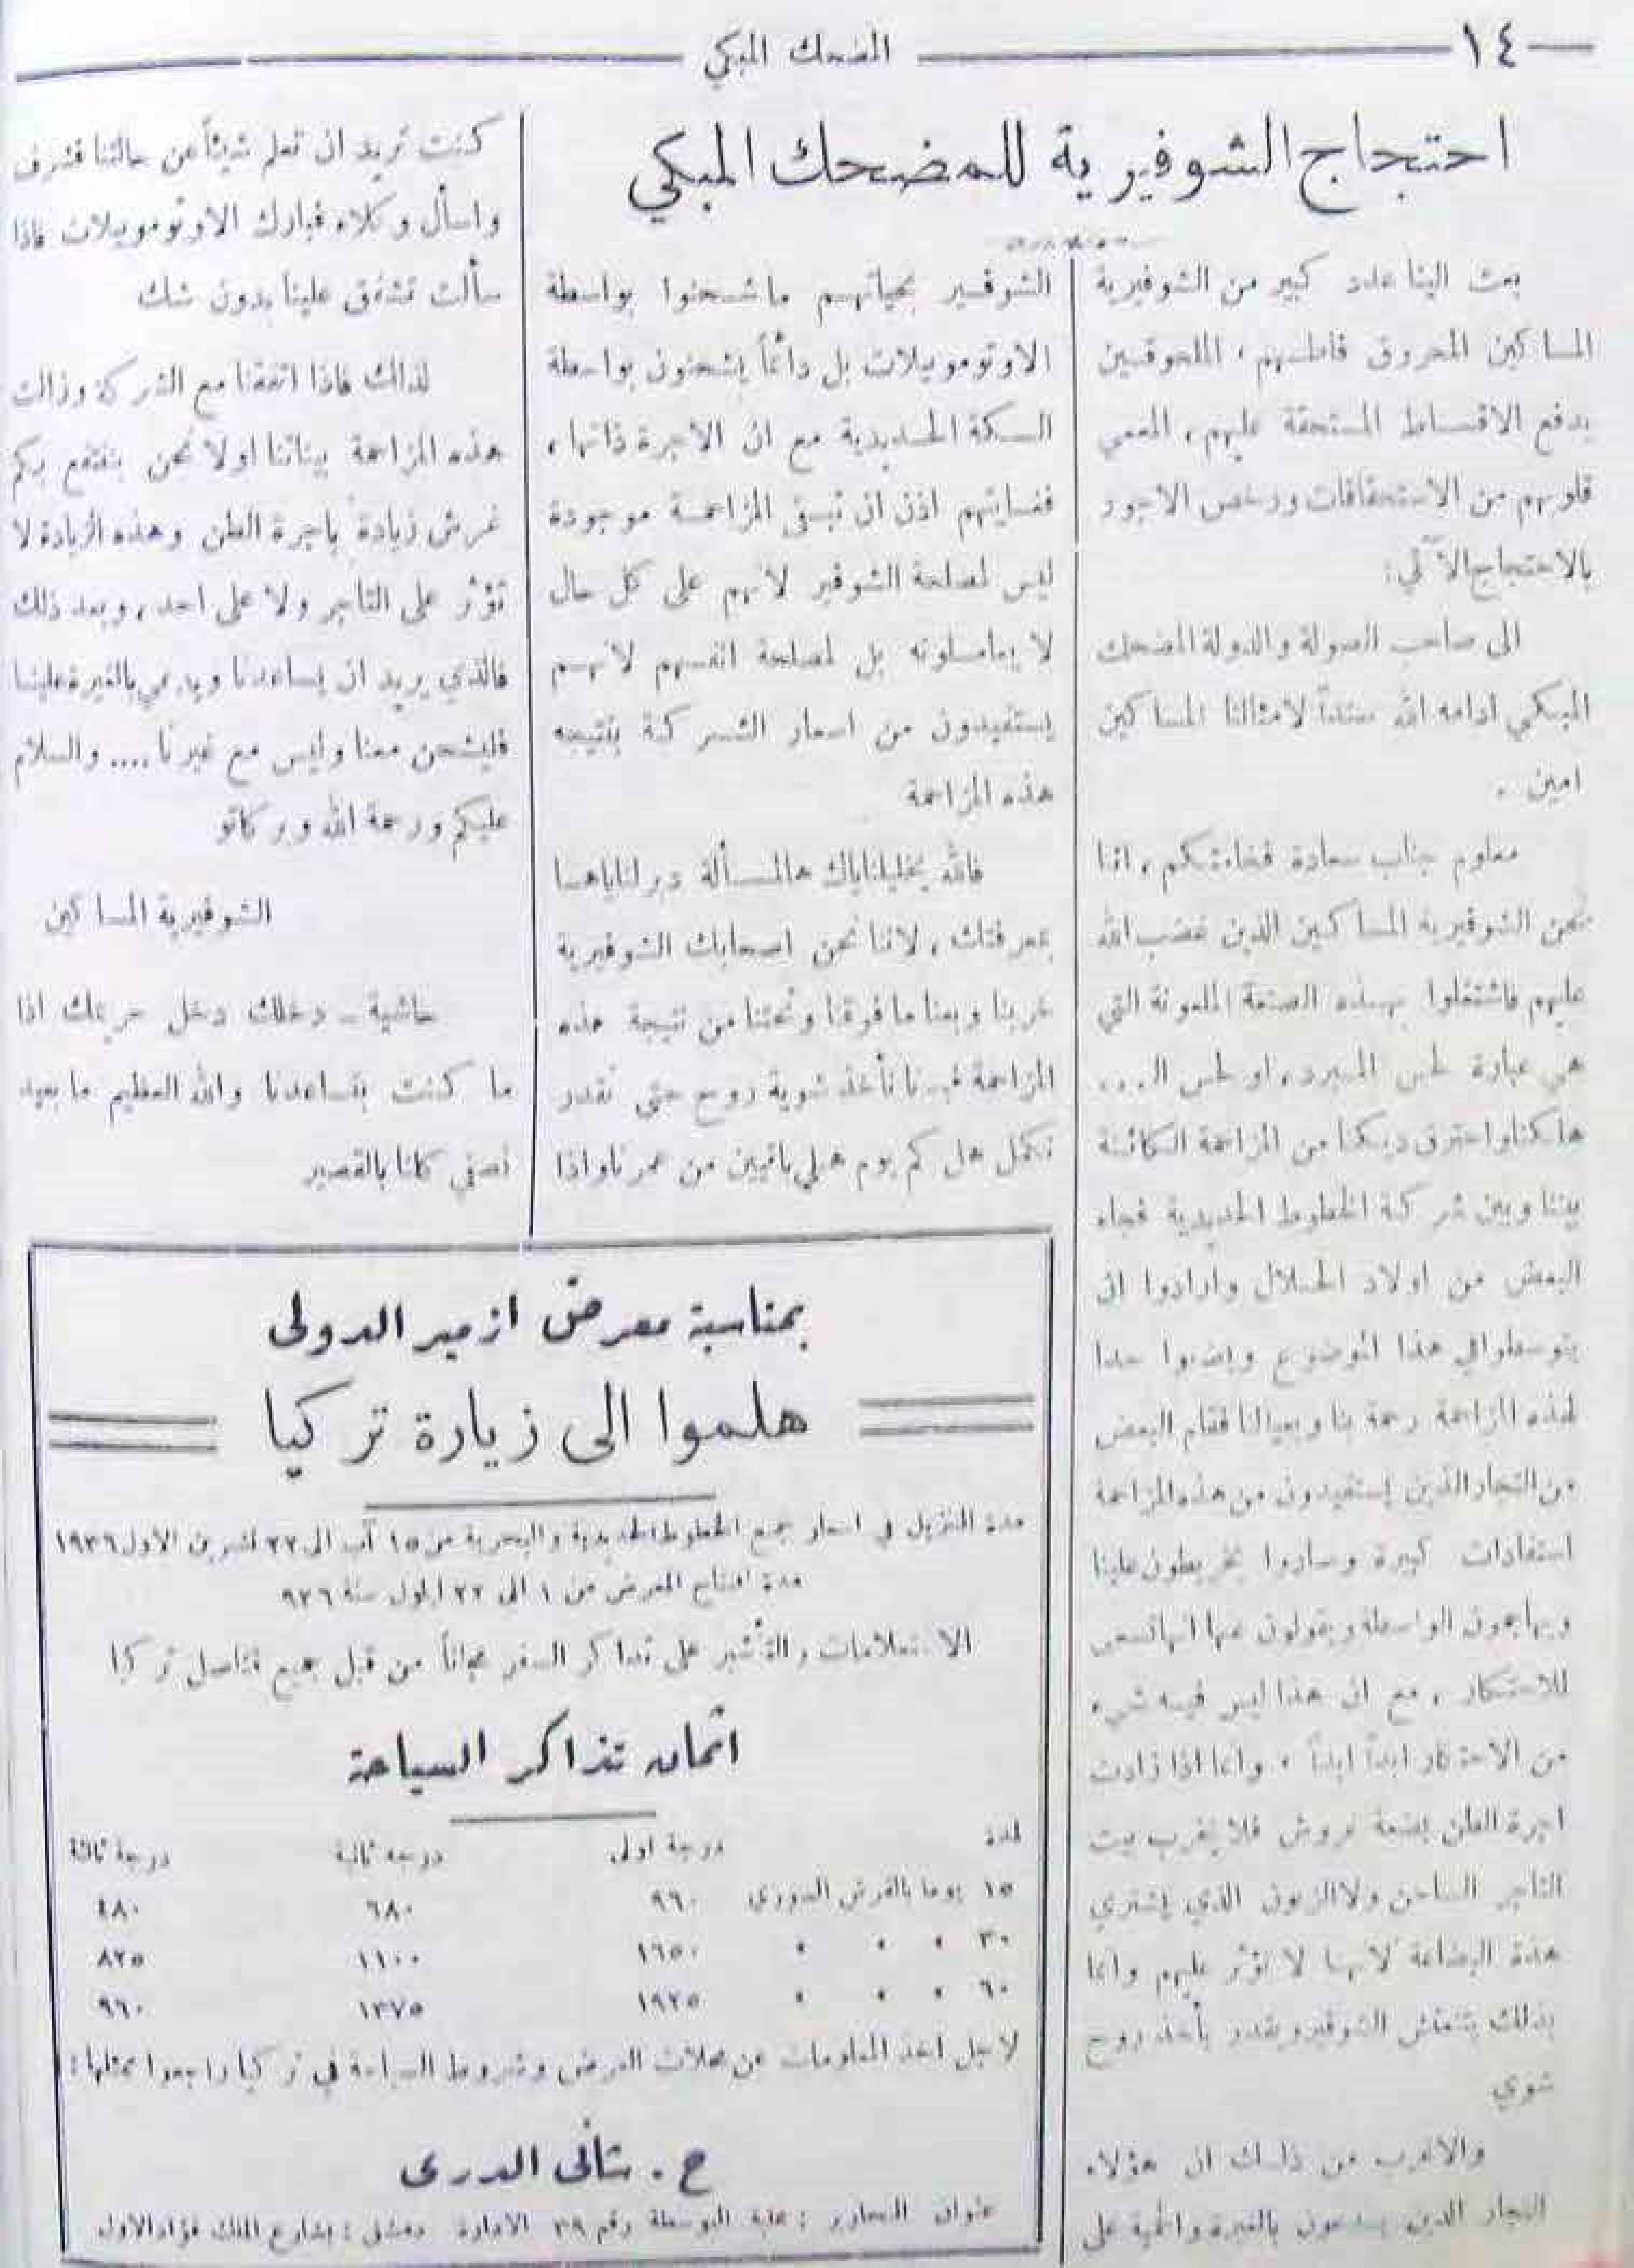 ١٤
المضحك المبكي
احتجاج الشوفيرية للمضحك المبكي
بعث الينا عدد كبير من الشوفيرية
المساكين المحروق فاطسهم ، الملحوقين
بدفع الاقساط المستحقة عليهم ، المعمي
قلوبهم من الاستحقاقات ورخص الاجور
بالاحتجاج الآتي :
الى صاحب الصولة والدولة المضحك
المبكي ادامه الله سنداً لامثالنا المساكين
امين .
معلوم جناب سعادة فخامتكم ، اننا
نحن الشوفيرية المساكين الذين غضب الله
عليهم فاشتغلوا بهذه الصنعة الملعونة التي
هي عبارة لحس المبرد ، او لحس الـ ....
هلكنا واحترق ديكنا من المزاحمة الكائنة
بيننا وبين شركة الخطوط الحديدية فجاء
البعض من اولاد الحلال وارادوا ان
يتوسطوا في هذا الموضوع ويضعوا حدا
لهذه المزاحمة رحمة بنا وبعيالنا فقام البعض
من التجار الذين يستفيدون من هذه المزاحمة
استفادات كبيرة وصاروا يخربطون علينا
ويهاجمون الواسطة ويقولون عنها انها تسعى
للاحتكار ، مع ان هذا ليس فيه شيء
من الاحتكار ابداً ابداً . وانما اذا زادت
اجرة الطن بضعة غروش فلا يخرب بيت
التاجر الساحن ولا الزبون الذي يشتري
هذة البضاعة لانها لا تؤثر عليهم وانما
بذلك يتنغنش الشوفير ويقدر يأخذ روح
شوي
والاغرب من ذلك ان هؤلاء
التجار الذين يدعون بالغيرة والحمية على
الشوفير بحياتهم ماشحنوا بواسطة
الاوتوموبيلات بل دائماً يشحنون بواسطة
السكة الحديدية مع ان الاجرة ذاتها ،
فغايتهم اذن ان تبقى المزاحمة موجودة
ليس لمصلحة الشوفير لانهم على كل حال
لا يعاملونه بل لمصلحة انفسهم لانهم
يستفيدون من اسعار الشركة بنتيجه
هذه المزاحمة
فالله يخليلناياك هالمسألة دبر لناياها
بمعرفتك ، لاننا نحن اصحابك الشوفيرية
خربنا وبعنا ما فوقنا وتحتنا من نتيجة هذه
المزاحمة فبدنا نأخذ شوية روح حتى نقدر
نكمل هل كم يوم هلي باقيين من عمرنا واذا
كنت تريد ان تعلم شيئاً عن حالتنا فشرف
واسأل وكلاء فبارك الاوتوموبيلات فاذا
سألت تشفق علينا بدون شك
لذلك فاذا اتفقنا مع الشركة وزالت
هذه المزاحمة بيناتنا اولا نحن بننتفع بكم
غرش زيادة باجرة الطن وهذه الزيادة لا
تؤثر على التاجر ولا على احد ، وبعد ذلك
فالذي يريد ان يساعدنا ويدعي بالغيرة علينا
فليشحن معنا وليس مع غيرنا .... والسلام
عليكم ورحمة الله وبركاتو
الشوفيرية المساكين
حاشية ـ دخلك دخل حريمك اذا
ما كنت بتساعدنا والله العظيم ما بعيد
نصفي كلنا بالقصير
بمناسبة معرض ازمير الدولى
هلموا الى زيارة تركيا
مدة التنزيل في اسعار جميع الخطوط الحديدية والبحرية من ١٥ آب الى ٢٢ تشرين الاول ١٩٣٦
مدة افتتاح المعرض من ١ الى ٢٢ ايلول سنة ٩٣٦
الاستعلامات والتأشير على تذاكر السفر مجاناً من قبل جميع قناصل تركيا
اثمان تذاكر السياحة
لمدة درجة اولى درجه ثانية درجة ثالثة
١٥ يوما بالقرش السوري ٩٦٠ ٦٨٠ ٤٨٠
٣٠ » » » ١٦٥٠ ١١٠٠ ٨٢٥
٦٠ » » » ١٩٢٥ ١٣٧٥ ٩٦٠
لاجل اخذ المعلومات عن محلات العرض وشروط السياحة في تركيا راجعوا ممثلها :
ح . شأنى الدرى
عنوان التحارير : علبة البوسطة رقم ٣٩ الادارة دمشق : بشارع الملك فؤاد الاول